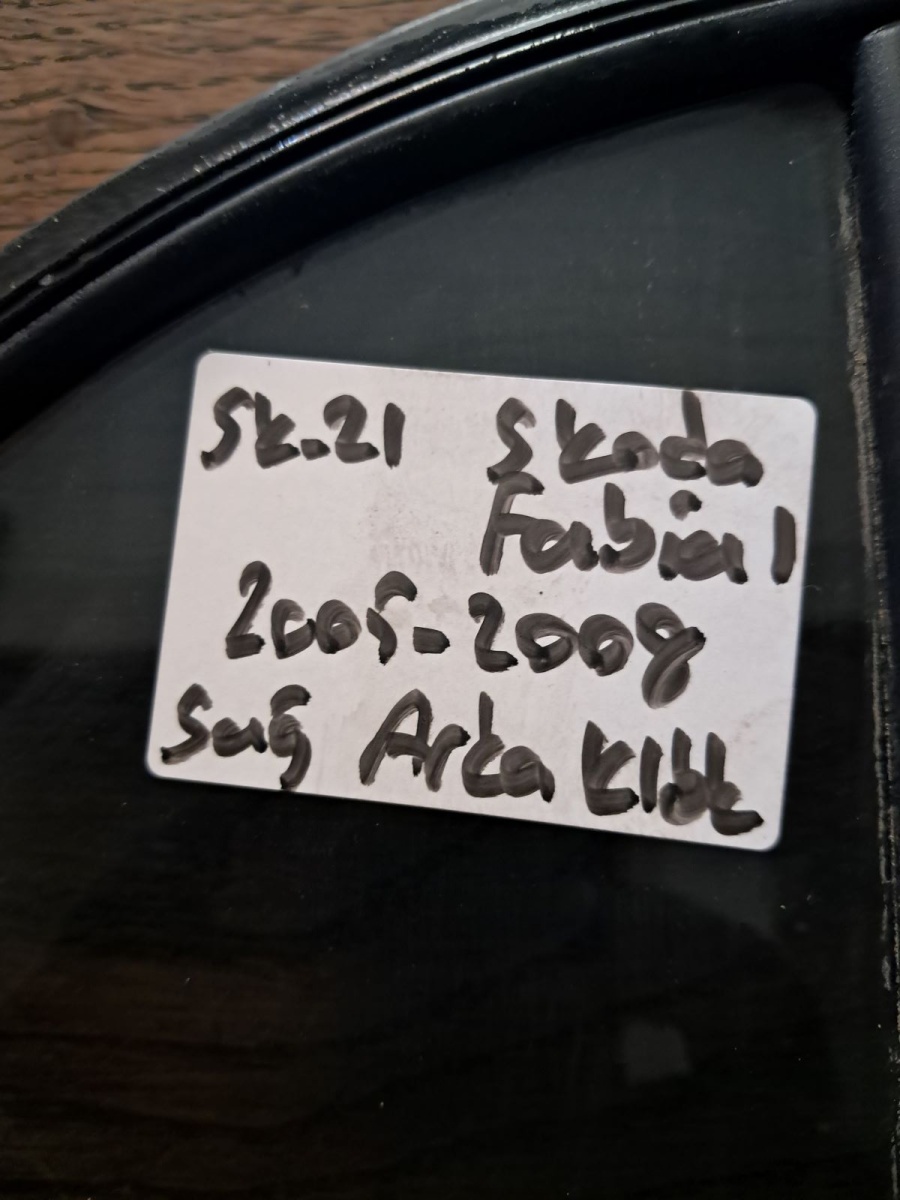 Sk.21 Skoda
Fabia 1
2005-2008
Sağ Arka